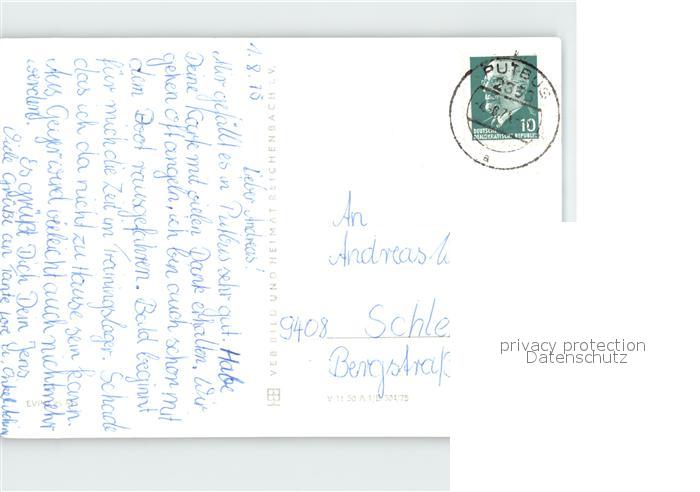 1.8.75
Lieber Andreas!
Mir gefällt es in Putbus sehr gut. Habe
Deine Karte mit vielen Dank erhalten. Wir
gehen oft angeln, ich bin auch schon mit
dem Boot rausgefahren. Bald beginnt
für mich die Zeit im Trainingslager. Schade
das ich da nicht zu Hause sein kann.
Aus Geyer wird vieleicht auch nicht mehr
werden!
Es grüßt Dich Dein Jens.
Viele Grüße an Tante
VEB BILD UND HEIMAT REICHENBACH I. V.
EVP
V 11 50 A 1/B 504/75
PUTBUS
a
10
DEUTSCHE
DEMOKRATISCHE REPUBLIK
An
Andreas
9408 Schle
Bergstraß
privacy protection
Datenschutz